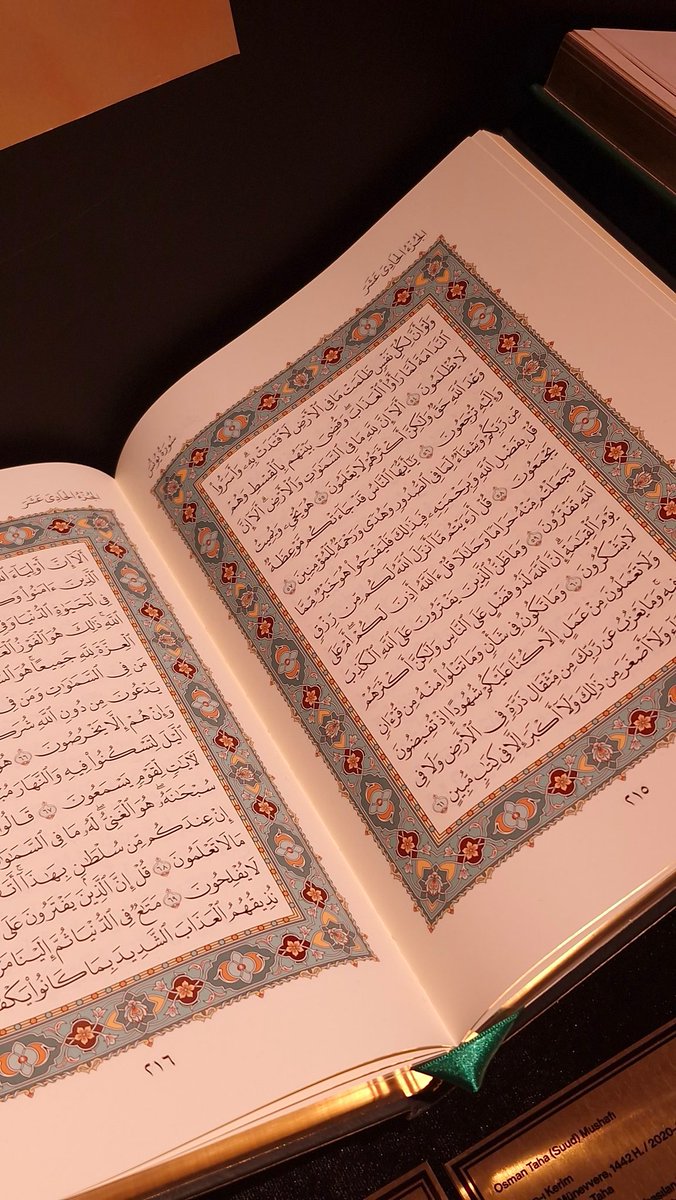 الجُزْءُ الحَادِي عَشَرَ
سُورَةُ يُونُسَ
وَلَوْ أَنَّ لِكُلِّ نَفْسٍ ظَلَمَتْ مَا فِى ٱلْأَرْضِ لَٱفْتَدَتْ بِهِۦۗ وَأَسَرُّوا۟
ٱلنَّدَامَةَ لَمَّا رَأَوُا۟ ٱلْعَذَابَۖ وَقُضِىَ بَيْنَهُم بِٱلْقِسْطِ وَهُمْ
لَا يُظْلَمُونَ ٥٤ أَلَآ إِنَّ لِلَّهِ مَا فِى ٱلسَّمَٰوَٰتِ وَٱلْأَرْضِۗ أَلَآ إِنَّ
وَعْدَ ٱللَّهِ حَقٌّ وَلَٰكِنَّ أَكْثَرَهُمْ لَا يَعْلَمُونَ ٥٥ هُوَ يُحْىِۦ وَيُمِيتُ
وَإِلَيْهِ تُرْجَعُونَ ٥٦ يَٰٓأَيُّهَا ٱلنَّاسُ قَدْ جَآءَتْكُم مَّوْعِظَةٌ
مِّن رَّبِّكُمْ وَشِفَآءٌ لِّمَا فِى ٱلصُّدُورِ وَهُدًى وَرَحْمَةٌ لِّلْمُؤْمِنِينَ ٥٧
قُلْ بِفَضْلِ ٱللَّهِ وَبِرَحْمَتِهِۦ فَبِذَٰلِكَ فَلْيَفْرَحُوا۟ هُوَ خَيْرٌ مِّمَّا
يَجْمَعُونَ ٥٨ قُلْ أَرَءَيْتُم مَّآ أَنزَلَ ٱللَّهُ لَكُم مِّن رِّزْقٍ
فَجَعَلْتُم مِّنْهُ حَرَامًا وَحَلَٰلًا قُلْ ءَآللَّهُ أَذِنَ لَكُمْۖ أَمْ عَلَى
ٱللَّهِ تَفْتَرُونَ ٥٩ وَمَا ظَنُّ ٱلَّذِينَ يَفْتَرُونَ عَلَى ٱللَّهِ ٱلْكَذِبَ
يَوْمَ ٱلْقِيَٰمَةِۗ إِنَّ ٱللَّهَ لَذُو فَضْلٍ عَلَى ٱلنَّاسِ وَلَٰكِنَّ أَكْثَرَهُمْ
لَا يَشْكُرُونَ ٦٠ وَمَا تَكُونُ فِى شَأْنٍ وَمَا تَتْلُوا۟ مِنْهُ مِن قُرْءَانٍ
وَلَا تَعْمَلُونَ مِنْ عَمَلٍ إِلَّا كُنَّا عَلَيْكُمْ شُهُودًا إِذْ تُفِيضُونَ
وَمَا يَعْزُبُ عَن رَّبِّكَ مِن مِّثْقَالِ ذَرَّةٍ فِى ٱلْأَرْضِ وَلَا فِى
وَلَآ أَصْغَرَ مِن ذَٰلِكَ وَلَآ أَكْبَرَ إِلَّا فِى كِتَٰبٍ مُّبِينٍ ٦١
٢١٥
الجُزْءُ الحَادِي عَشَرَ
أَلَآ إِنَّ أَوْلِيَآءَ
ٱلَّذِينَ ءَامَنُوا۟
فِى ٱلْحَيَوٰةِ ٱلدُّنْيَا
ٱللَّهِۚ ذَٰلِكَ هُوَ ٱلْفَوْزُ
ٱلْعِزَّةَ لِلَّهِ جَمِيعًاۚ هُوَ
مَن فِى ٱلسَّمَٰوَٰتِ وَمَن فِى
يَدْعُونَ مِن دُونِ ٱللَّهِ
وَإِنْ هُمْ إِلَّا يَخْرُصُونَ ٦٦
ٱلَّيْلَ لِتَسْكُنُوا۟ فِيهِ وَٱلنَّهَارَ
لَءَايَٰتٍ لِّقَوْمٍ يَسْمَعُونَ ٦٧ قَالُوا۟
سُبْحَٰنَهُۥۖ هُوَ ٱلْغَنِىُّۖ لَهُۥ مَا فِى
إِنْ عِندَكُم مِّن سُلْطَٰنٍۭ بِهَٰذَآۚ
مَا لَا تَعْلَمُونَ ٦٨ قُلْ إِنَّ ٱلَّذِينَ يَفْتَرُونَ عَلَى
لَا يُفْلِحُونَ ٦٩ مَتَٰعٌ فِى ٱلدُّنْيَا ثُمَّ إِلَيْنَا
نُذِيقُهُمُ ٱلْعَذَابَ ٱلشَّدِيدَ بِمَا كَانُوا۟
٢١٦
Osman Taha (Suud) Mushafı
Kerîm
1442 H. / 2020